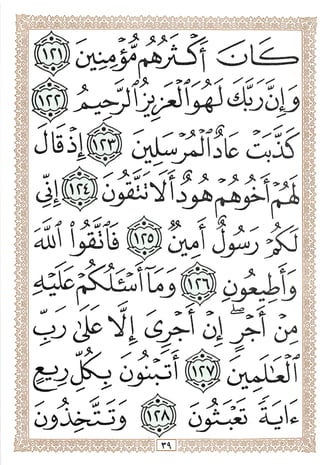 كَانَ أَكۡثَرُهُم مُّؤۡمِنِينَ ١٢١
وَإِنَّ رَبَّكَ لَهُوَ ٱلۡعَزِيزُ ٱلرَّحِيمُ ١٢٢
كَذَّبَتۡ عَادٌ ٱلۡمُرۡسَلِينَ ١٢٣ إِذۡ قَالَ
لَهُمۡ أَخُوهُمۡ هُودٌ أَلَا تَتَّقُونَ ١٢٤ إِنِّي
لَكُمۡ رَسُولٌ أَمِينٌ ١٢٥ فَٱتَّقُواْ ٱللَّهَ
وَأَطِيعُونِ ١٢٦ وَمَآ أَسۡـَٔلُكُمۡ عَلَيۡهِ
مِنۡ أَجۡرٍۖ إِنۡ أَجۡرِيَ إِلَّا عَلَىٰ رَبِّ
ٱلۡعَٰلَمِينَ ١٢٧ أَتَبۡنُونَ بِكُلِّ رِيعٍ
ءَايَةٗ تَعۡبَثُونَ ١٢٨ وَتَتَّخِذُونَ
٣٩